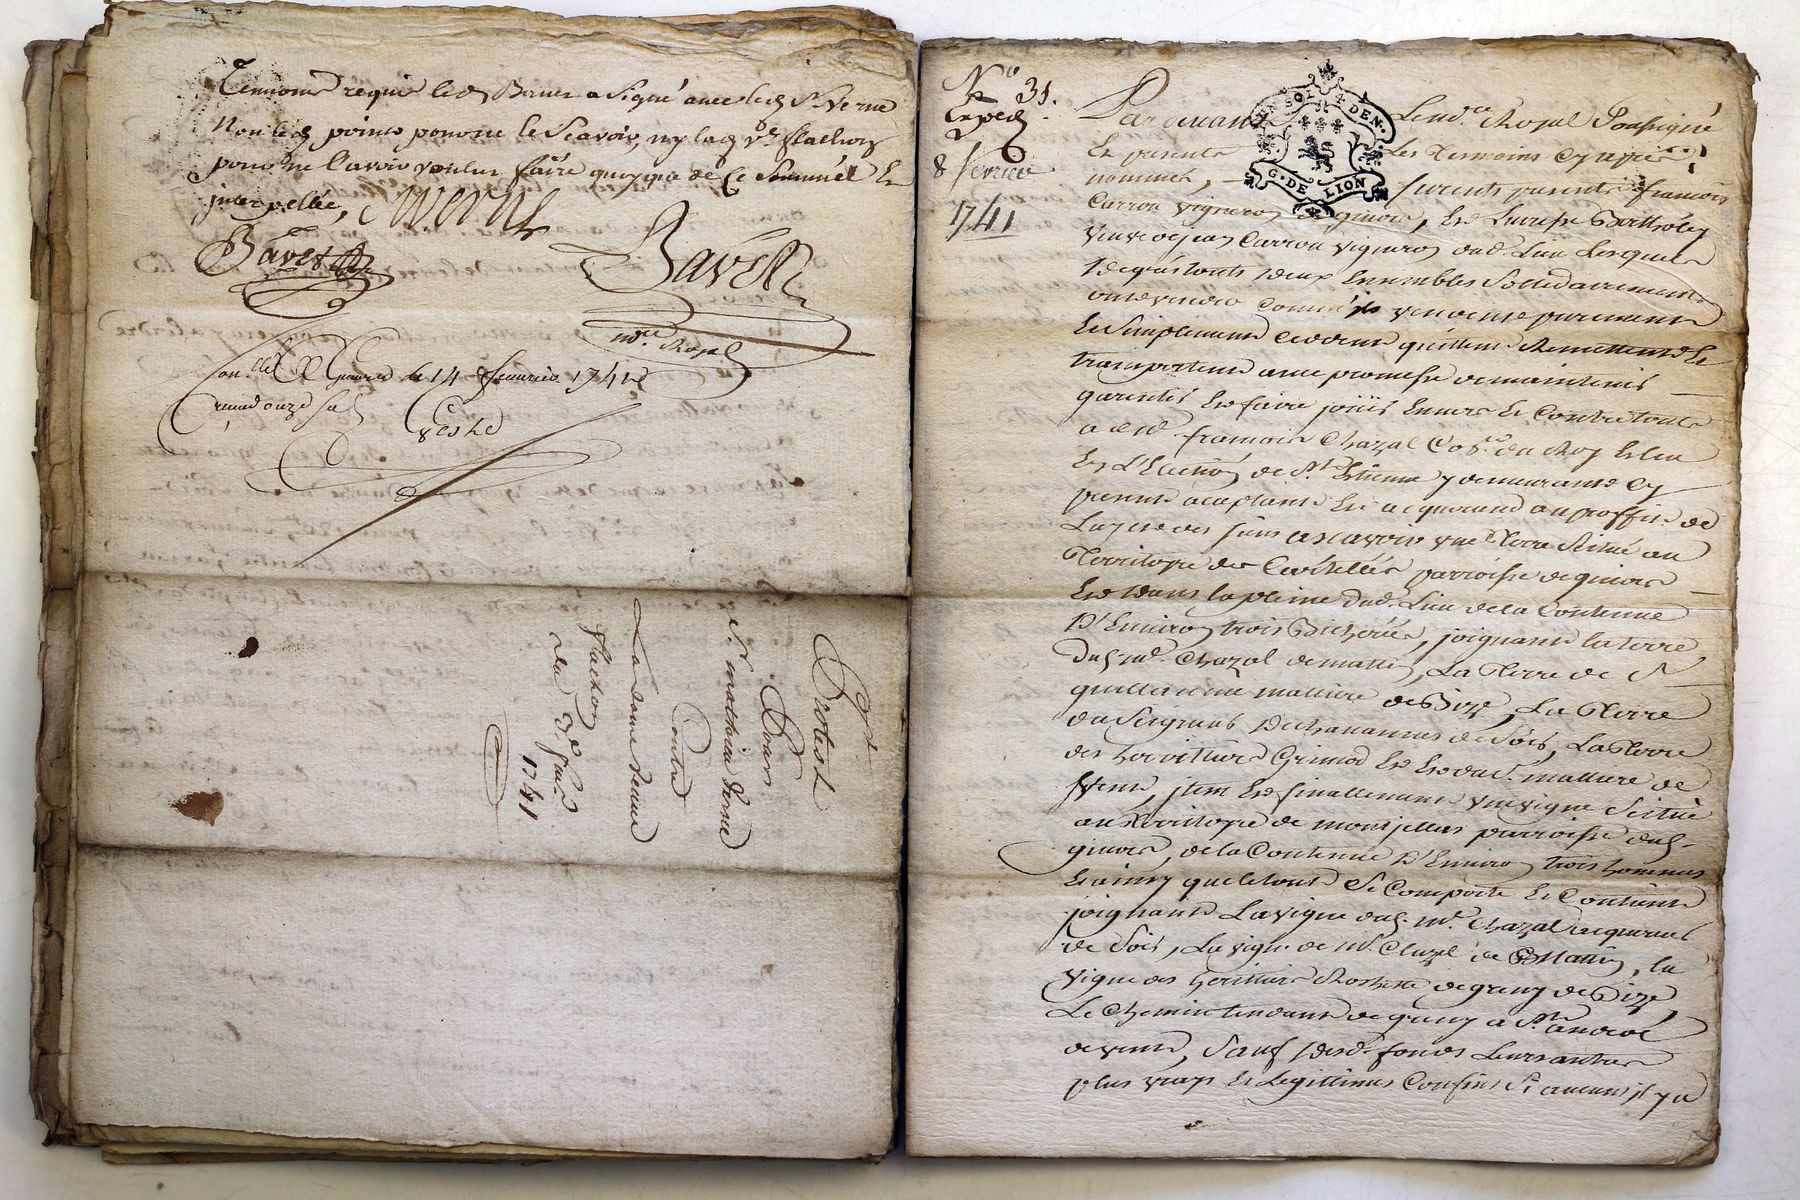 Temoins requis led. Bavet a signé avec led. Sr. Verne
Non led. pointe pour ne le scavoir, ny lad. ve. flachon
pour ne l'avoir voulu faire quoyque de ce sommée et
interpellée,
Verne
Bavet
Bavet
nre. Royal
Con.llé à Givors le 14 fevrier 1741
Receu onze sols
Protest
Pour
Sr. mathieu Verne
Contre
La dame veuve
flachon
1741
No. 31.
Exped.
8 fevrier
1741
UN SOL 4 DEN.
G. DE LION
Pardevant Le no.re Royal soussigné
Et presents Les Temoins cy après
nommés, furent presents françois
Carron vigneron de givors, et
veuve de jean Carron vigneron dud. Lieu Lesquels
de gré touts deux Ensembles Sollidairement
ont vendu comme ils vendent purement
Et simplement cedent quittent Remettent Et
transportent avec promesse de maintenir
garentir Et faire jouïr Envers Et Contre touts
a Me. françois Chazal Cos.er du Roy Esleu
En L'Election de St. Etienne y demeurant Cy
present acceptant Et acquerant au proffit de
Luy et des siens ascavoir une Terre Scitué au
Territoire des parroisse de givors
Et dans la pleine dud. Lieu de la Contenue
D'Environ trois Bicherées, joignant la terre
dud. Me. Chazal de matin, La Terre de Sr.
guillaume malliere de Bize, La Terre
du Seigneur De chavannes de Soir, La Terre
des heritiers Grimod Et Et du Sr. malliere de
Vent, item Et finallement une vigne Scitué
au Territoire de montjellas parroisse dud.
givors, de la Contenue D'Environ trois hommes
Et ainsy que le tout Se Comporte Et Contient
joignant La vigne dud. Me. Chazal acquereur
de Soir, La vigne de Mr. Cluzel de Matin, la
vigne des heritiers de grany de Bize,
Le Chemin tendant de grany a St. andeol
de vent, Sauf desd. fonds Leurs autres
plus vrays Et Legittimes Confins Si aucuns il y a